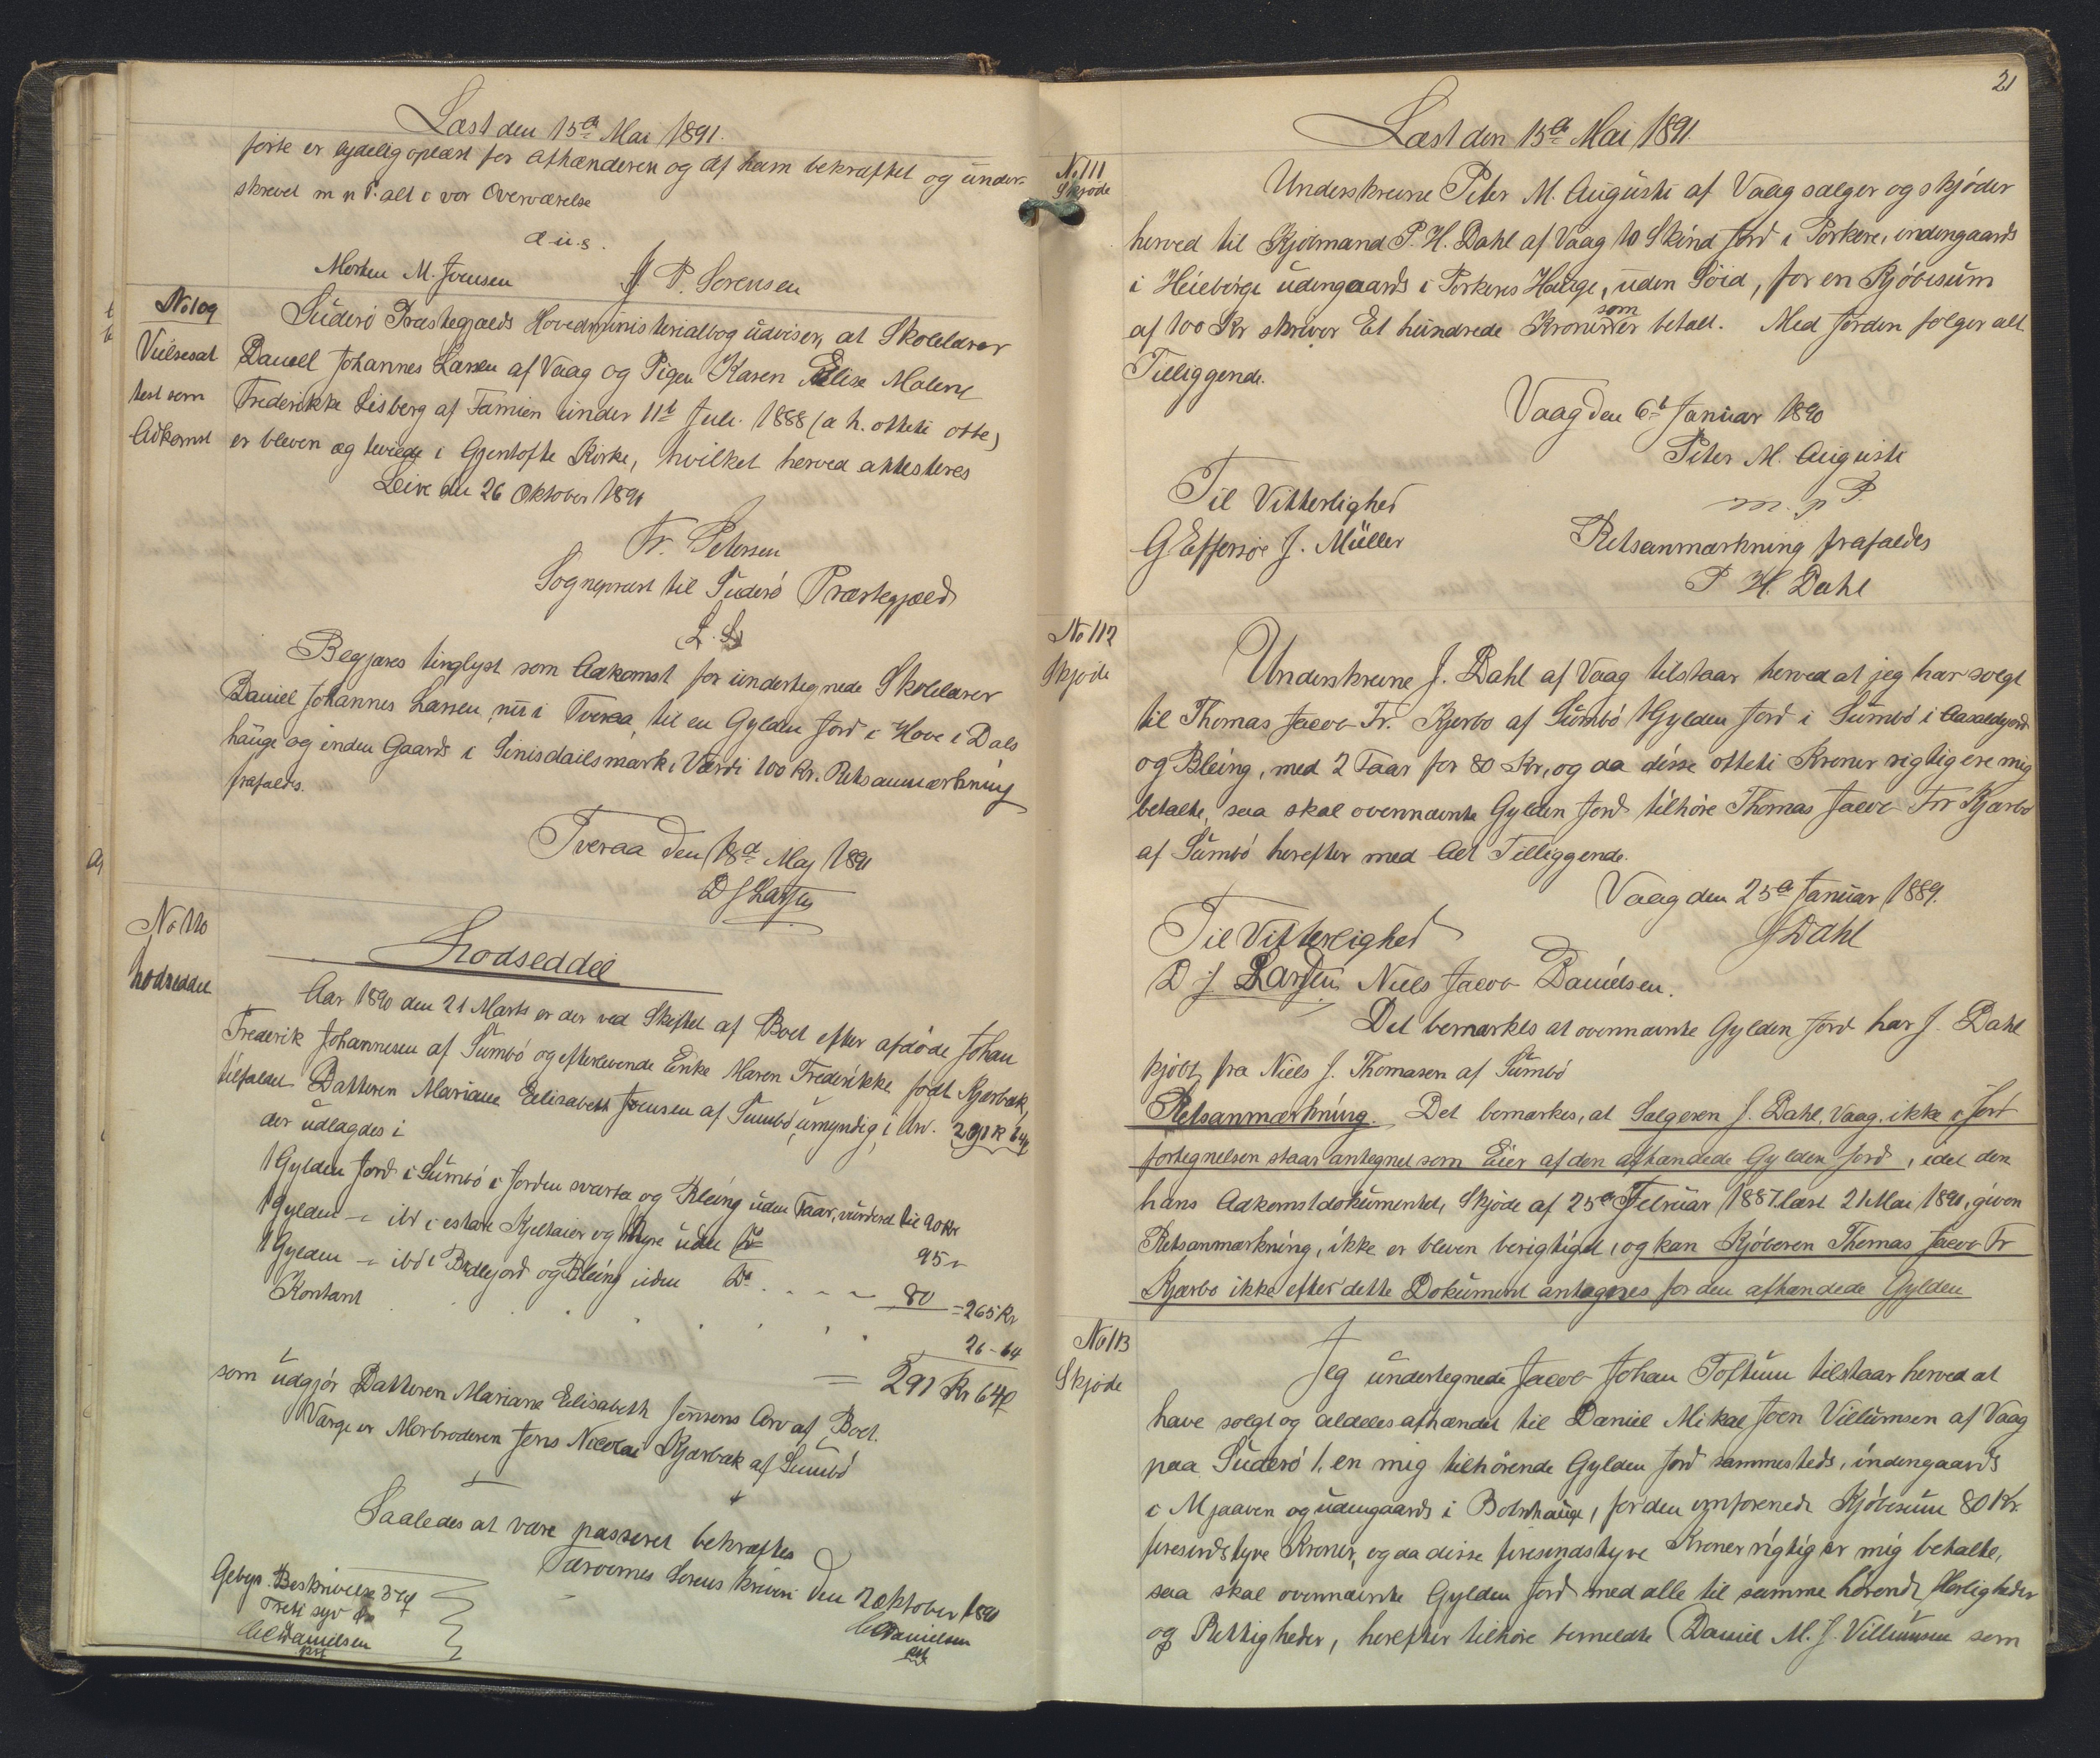 Læst den 15de Mai 1891.
førte er lydelig oplæst for Afhænderen og af ham bekræftet og under-
skrevet m p P. alt i vor Overværelse
d.u.s.
Morten M. Joensen J P. Sørensen
No 109
Vielsesat
test som
Adkomst
Suderø Præstegjælds Hovedministerialbog udviser, at Skolelærer
Daniel Johannes Larsen af Vaag og Pigen Karen Elise Malene
Frederikke Lisberg af Famien under 11te Juli 1888 (a h. otteti otte)
er bleven ægteviede i Gjentofte Kirke, hvilket herved attesteres
den 26 Oktober 1890
Fr. Petersen
Sognepræst til Suderø Præstegjæld
(L. S.)
Begjæres tinglyst som Adkomst for undertegnede Skolelærer
Daniel Johannes Larsen, nu i Tveraa, til en Gylden Jord i Hove i Dals
hauge og inden Gaards i Sinisdailsmark, Værdi 100 Kr. Retsanmærkning
frafaldes.
Tveraa den 18d Maj 1891
D J Larsen
No 110
Lodseddel
Lodseddel
Aar 1890 den 21 Marts er der ved Skiftet af Boet efter afdøde Johan
Frederik Johannesen af Sumbø og efterlevende Enke Maren Frederikke født Kjærbæk,
tilfaldet Datteren Mariane Elisabeth Jensen af Sumbø, umyndig, i Arv. 291 K 64
der udlagdes i
1 Gylden Jord i Sumbø i Jorden svarta og Bleing uden Taar, vurderet til 90 Kr
1 Gylden - ibd i estare Kjeltaier og uden Do 95 -
1 Gylden - ibd i og Bleing uden Do . . - - - 80 = 265 Kr
Kontant . . . . . . 26 - 64
= 291 Kr 64
som udgjør Datteren Mariane Elisabeth Jensens Arv af Boet.
Værge er Morbroderen Jens Nicolai Kjærbæk af Sumbø
Saaledes at være passeret bekræftes
Færøernes Sorenskriveri den 2 Oktober 1890
CDanielsen
Gebyr. Beskrivelse 37
Treti syv
CDanielsen
21
Læst den 15de Mai 1891.
No 111
Skjøde
Underskrevne Peter M. Auguste af Vaag sælger og skjøder
herved til Kjøbmand P. H. Dahl af Vaag 10 Skind Jord i Porkere, indengaards
i Heieberge udengaards i Porkeres Hauge, uden Söid, for en Kjöbesum
af 100 Kr skriver Et hundrede Kroner som er betalt. Med Jorden følger alt
Tilliggende.
Vaag den 6t Januar 1890
Peter M. Auguste
m. p P.
Til Vitterlighed
G Effersøe J. Müller
Retsanmærkning frafaldes
P H. Dahl
No 112
Skjøde
Underskrevne J. Dahl af Vaag tilstaar herved at jeg har solgt
til Thomas Jacob Fr. Kjerbo af Sumbø 1 Gylden Jord i Sumbø i
og Bleing, med 2 Taar for 80 Kr, og da disse otteti Kroner rigtig ere mig
betalte, saa skal ovennævnte Gylden Jord tilhøre Thomas Jacob Fr Kjærbo
af Sumbø herefter med Alt Tilliggende.
Vaag den 25de Januar 1889.
J Dahl
Til Vitterlighed
D J Larsen Niels Jacob Danielsen.
Det bemærkes at ovennævnte Gylden Jord har J. Dahl
kjøbt fra Niels J. Thomasen af Sumbø
Retsanmærkning. Det bemærkes, at Sælgeren J. Dahl, Vaag, ikke i Jord
fortegnelsen staar antegnet som Eier af den afhændede Gylden Jord, idet den
hans Adkomstdokumentet, Skjøde af 25de Februar 1887 læst 21 Mai 1890, given
Retsanmærkning, ikke er bleven berigtiget, og kan Kjøberen Thomas Jacob Fr
Kjærbo ikke efter dette Dokument antegnes for den afhændede Gylden
No 113
Skjøde
Jeg undertegnede Jacob Johan Toftum tilstaar herved at
have solgt og aldeles afhændet til Daniel Mikal Joen Villumsen af Vaag
paa Suderø 1, en mig tilhørende Gylden Jord sammesteds, indengaards
i Mjaaven og udengaards i Botnhauge, for den omforenede Kjøbesum 80 Kr
firesindstyve Kroner, og da disse firesindstyve Kroner rigtig er mig betalte,
saa skal ovennævnte Gylden Jord med alle til samme hørende Herligheder
og Rettigheder, herefter tilhøre bemeldte Daniel M. J. Villumsen som